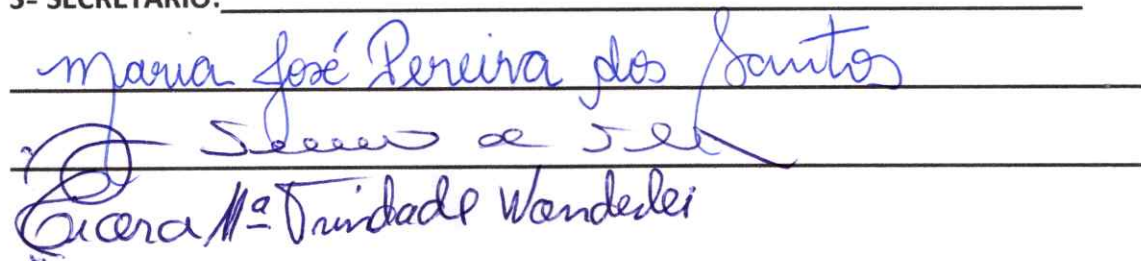 3º SECRETÁRIO:
Maria José Pereira dos Santos
de
Cicera Mª Trindade Wanderlei